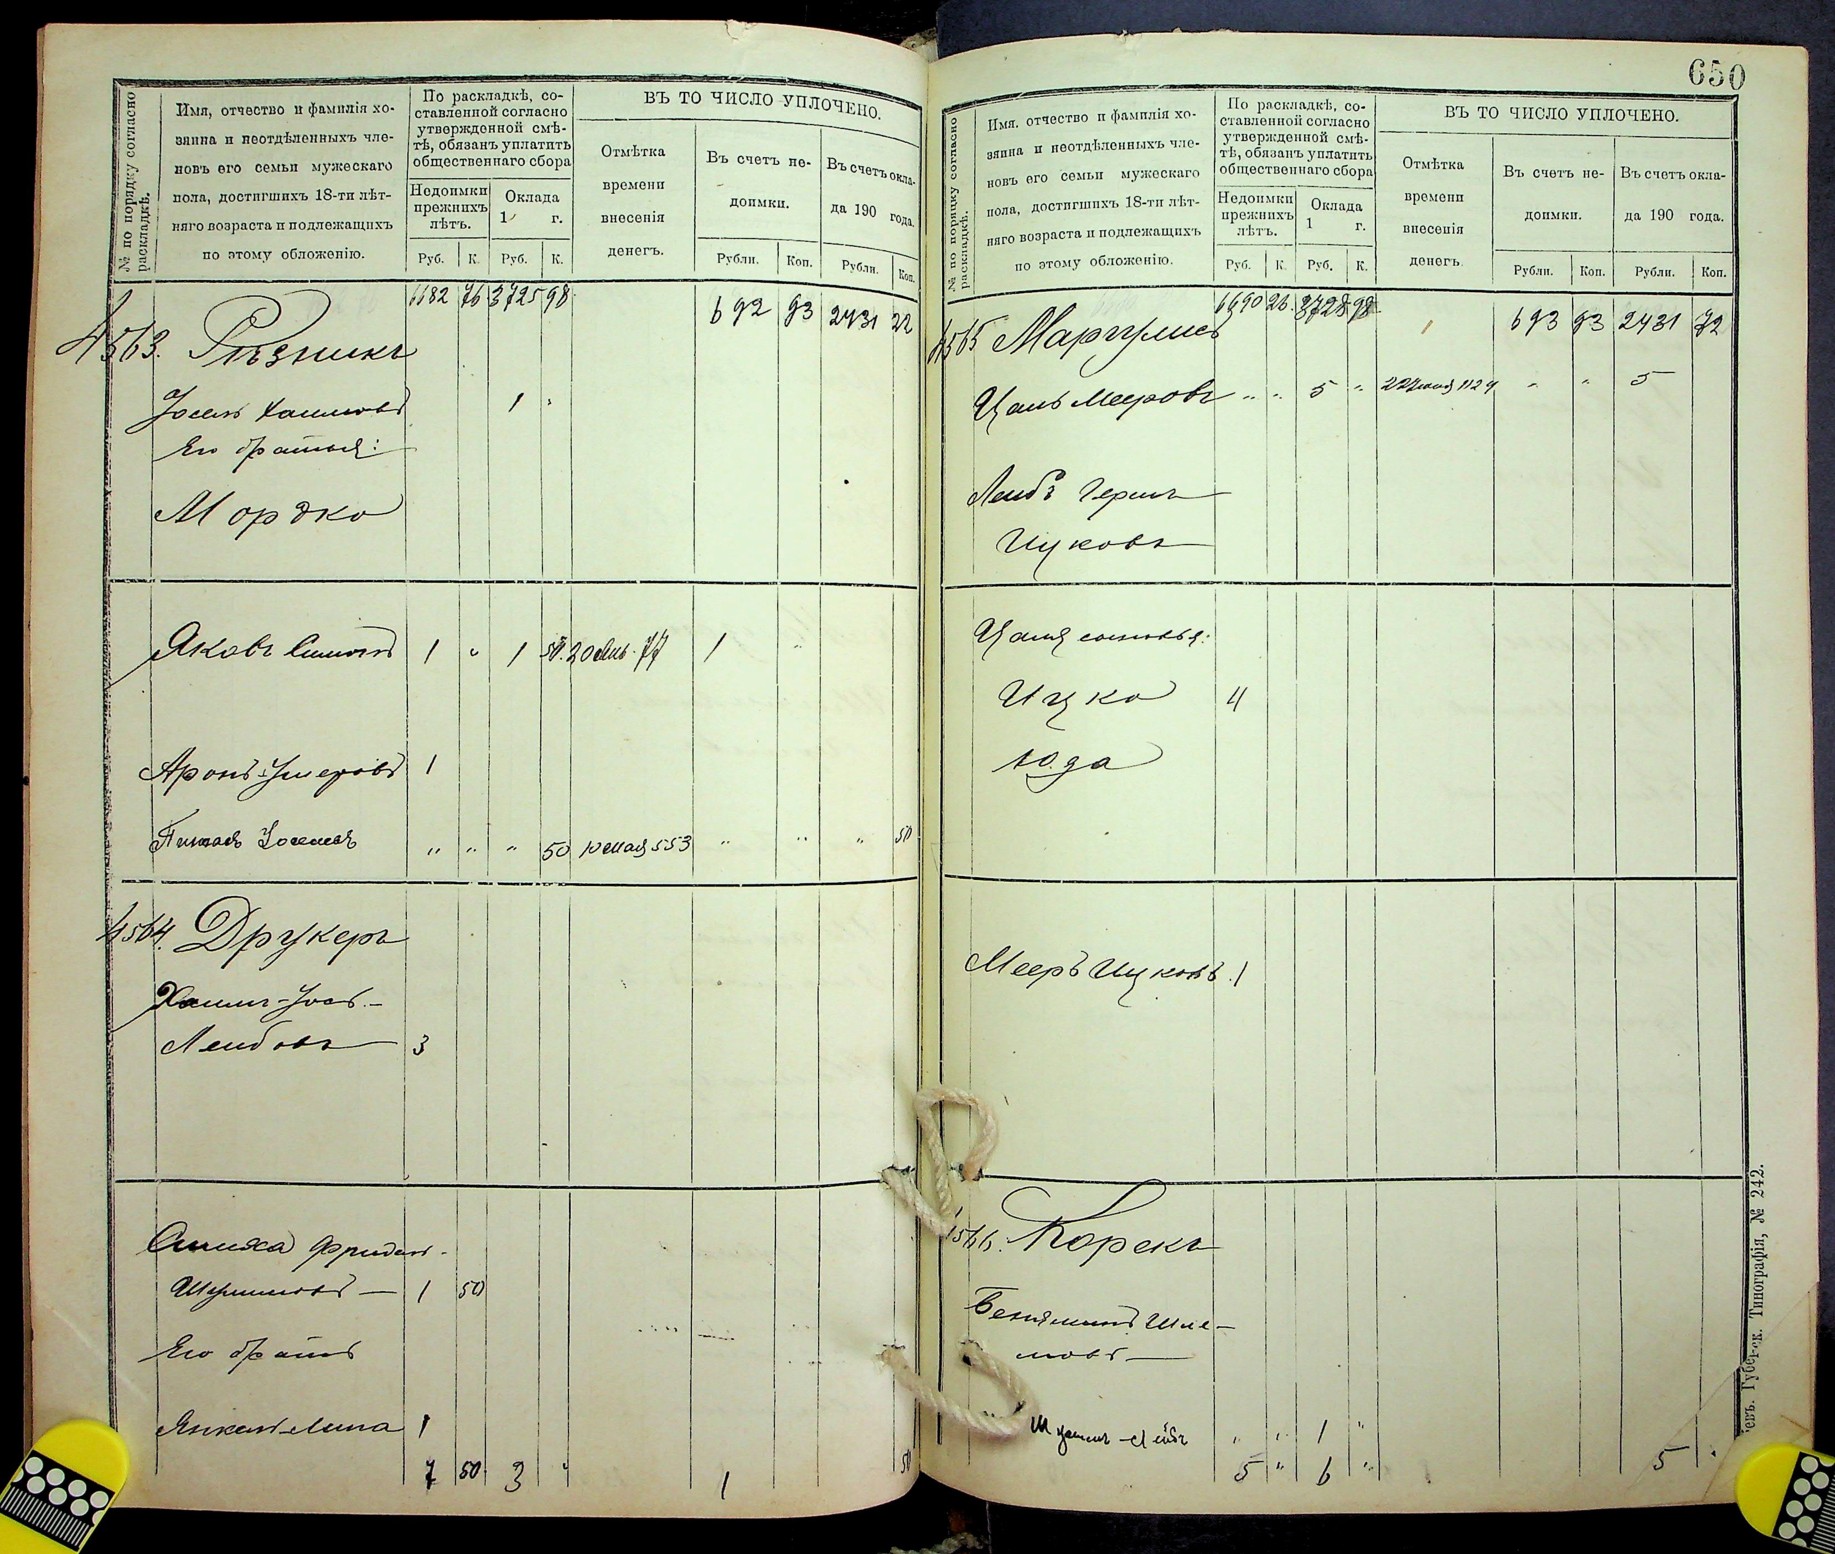 650
№ по порядку согласно раскладкѣ.
Имя, отчество и фамилія хо-
зяина и неотдѣленныхъ чле-
новъ его семьи мужескаго
пола, достигшихъ 18-ти лѣт-
няго возраста и подлежащихъ
по этому обложенію.
По раскладкѣ, со-
ставленной согласно
утвержденной смѣ-
тѣ, обязанъ уплатить
общественнаго сбора
Недоимки
прежнихъ
лѣтъ.
Оклада
1 г.
Руб. К. Руб. К.
ВЪ ТО ЧИСЛО УПЛОЧЕНО.
Отмѣтка
времени
внесенія
денегъ.
Въ счетъ не-
доимки.
Въ счетъ окла-
да 190 года.
Рубли. Коп. Рубли. Коп.
6682 76 3725 98 692 93 2431 22
4563. Рѣзникъ
Іосель Хаимовъ 1 "
Его братья:
Мордко
Яковъ 1 " 1 50 20 77 1 "
Аронъ 1
" " " 50 10 мая 553 " " " 50
4564. Друкеръ
Хаимъ-Іось-
Лейбовъ 3
1 50
Его братъ
1
7 50 3 " 1 50
№ по порядку согласно раскладкѣ.
Имя, отчество и фамилія хо-
зяина и неотдѣленныхъ чле-
новъ его семьи мужескаго
пола, достигшихъ 18-ти лѣт-
няго возраста и подлежащихъ
по этому обложенію.
По раскладкѣ, со-
ставленной согласно
утвержденной смѣ-
тѣ, обязанъ уплатить
общественнаго сбора
Недоимки
прежнихъ
лѣтъ.
Оклада
1 г.
Руб. К. Руб. К.
ВЪ ТО ЧИСЛО УПЛОЧЕНО.
Отмѣтка
времени
внесенія
денегъ.
Въ счетъ не-
доимки.
Въ счетъ окла-
да 190 года.
Рубли. Коп. Рубли. Коп.
6690 26 3728 98 693 93 2431 72
4565 Маргулисъ
Цаль Мееровъ " " 5 " 22 1124 " " 5
Лейбъ Гершъ
Ицковъ
Цаля сыновья:
Ицко 4
Юда
Мееръ Ицковъ 1
4566. Корекъ
Беньяминъ Шле-
мовъ
" " 1 "
5 " 6 " 5 "
Губернск. Типографія, № 242.